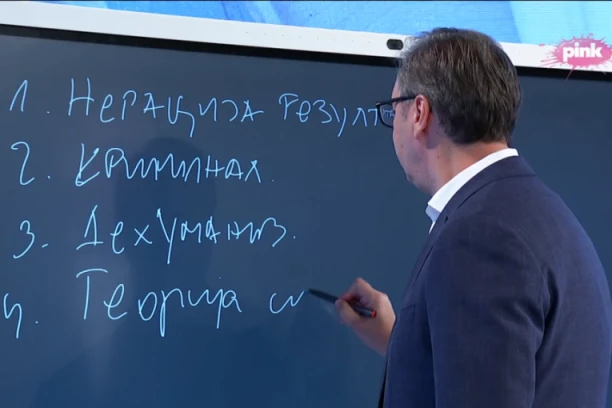 pink
1. Негација резулт
2. Криминал.
3. Дехуманиз.
4. Теорија